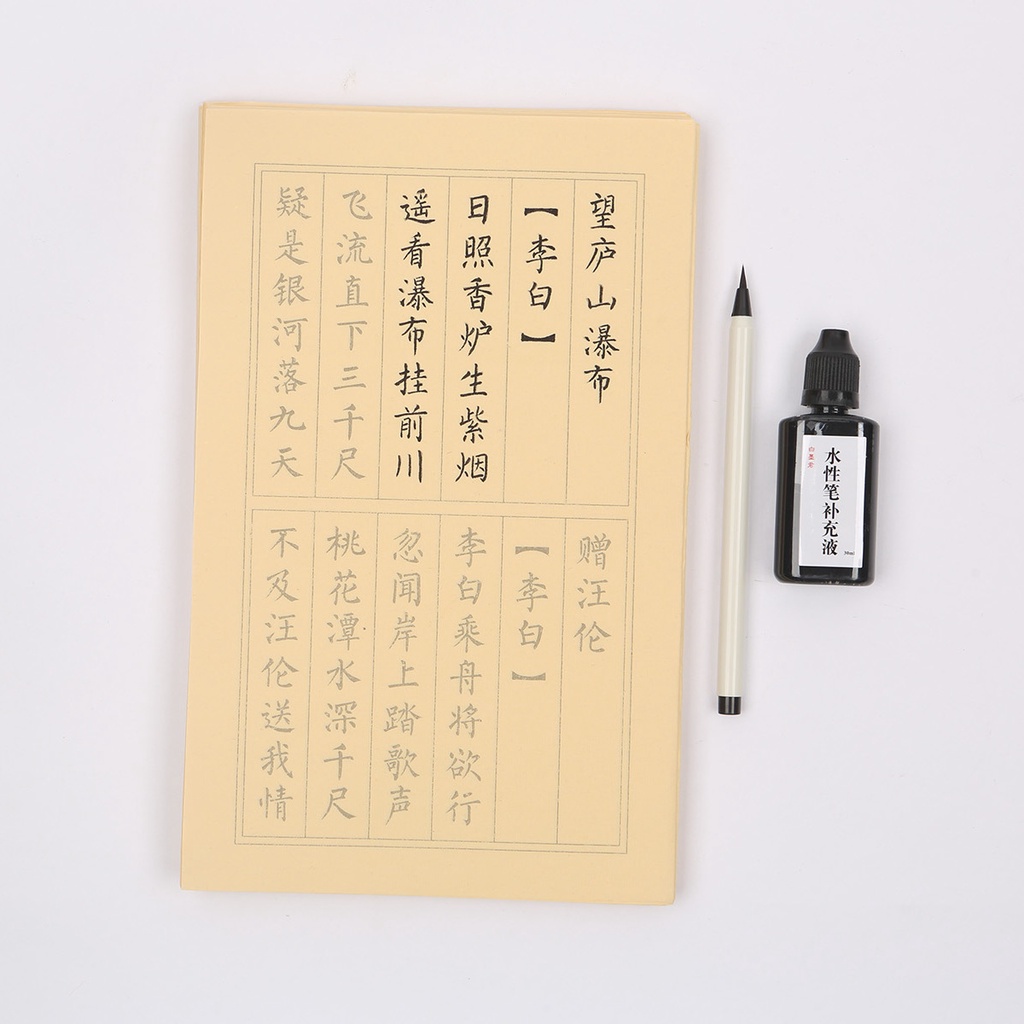 望庐山瀑布
【李白】
日照香炉生紫烟
遥看瀑布挂前川
飞流直下三千尺
疑是银河落九天
赠汪伦
【李白】
李白乘舟将欲行
忽闻岸上踏歌声
桃花潭水深千尺
不及汪伦送我情
水性笔补充液
30ml